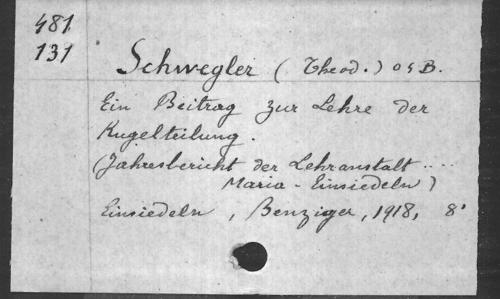 481
131
Schwegler (Theod.) OSB.
Ein Beitrag zur Lehre der
Kugelteilung.
(Jahresbericht der Lehranstalt ....
Maria-Einsiedeln)
Einsiedeln, Benziger, 1918, 8°